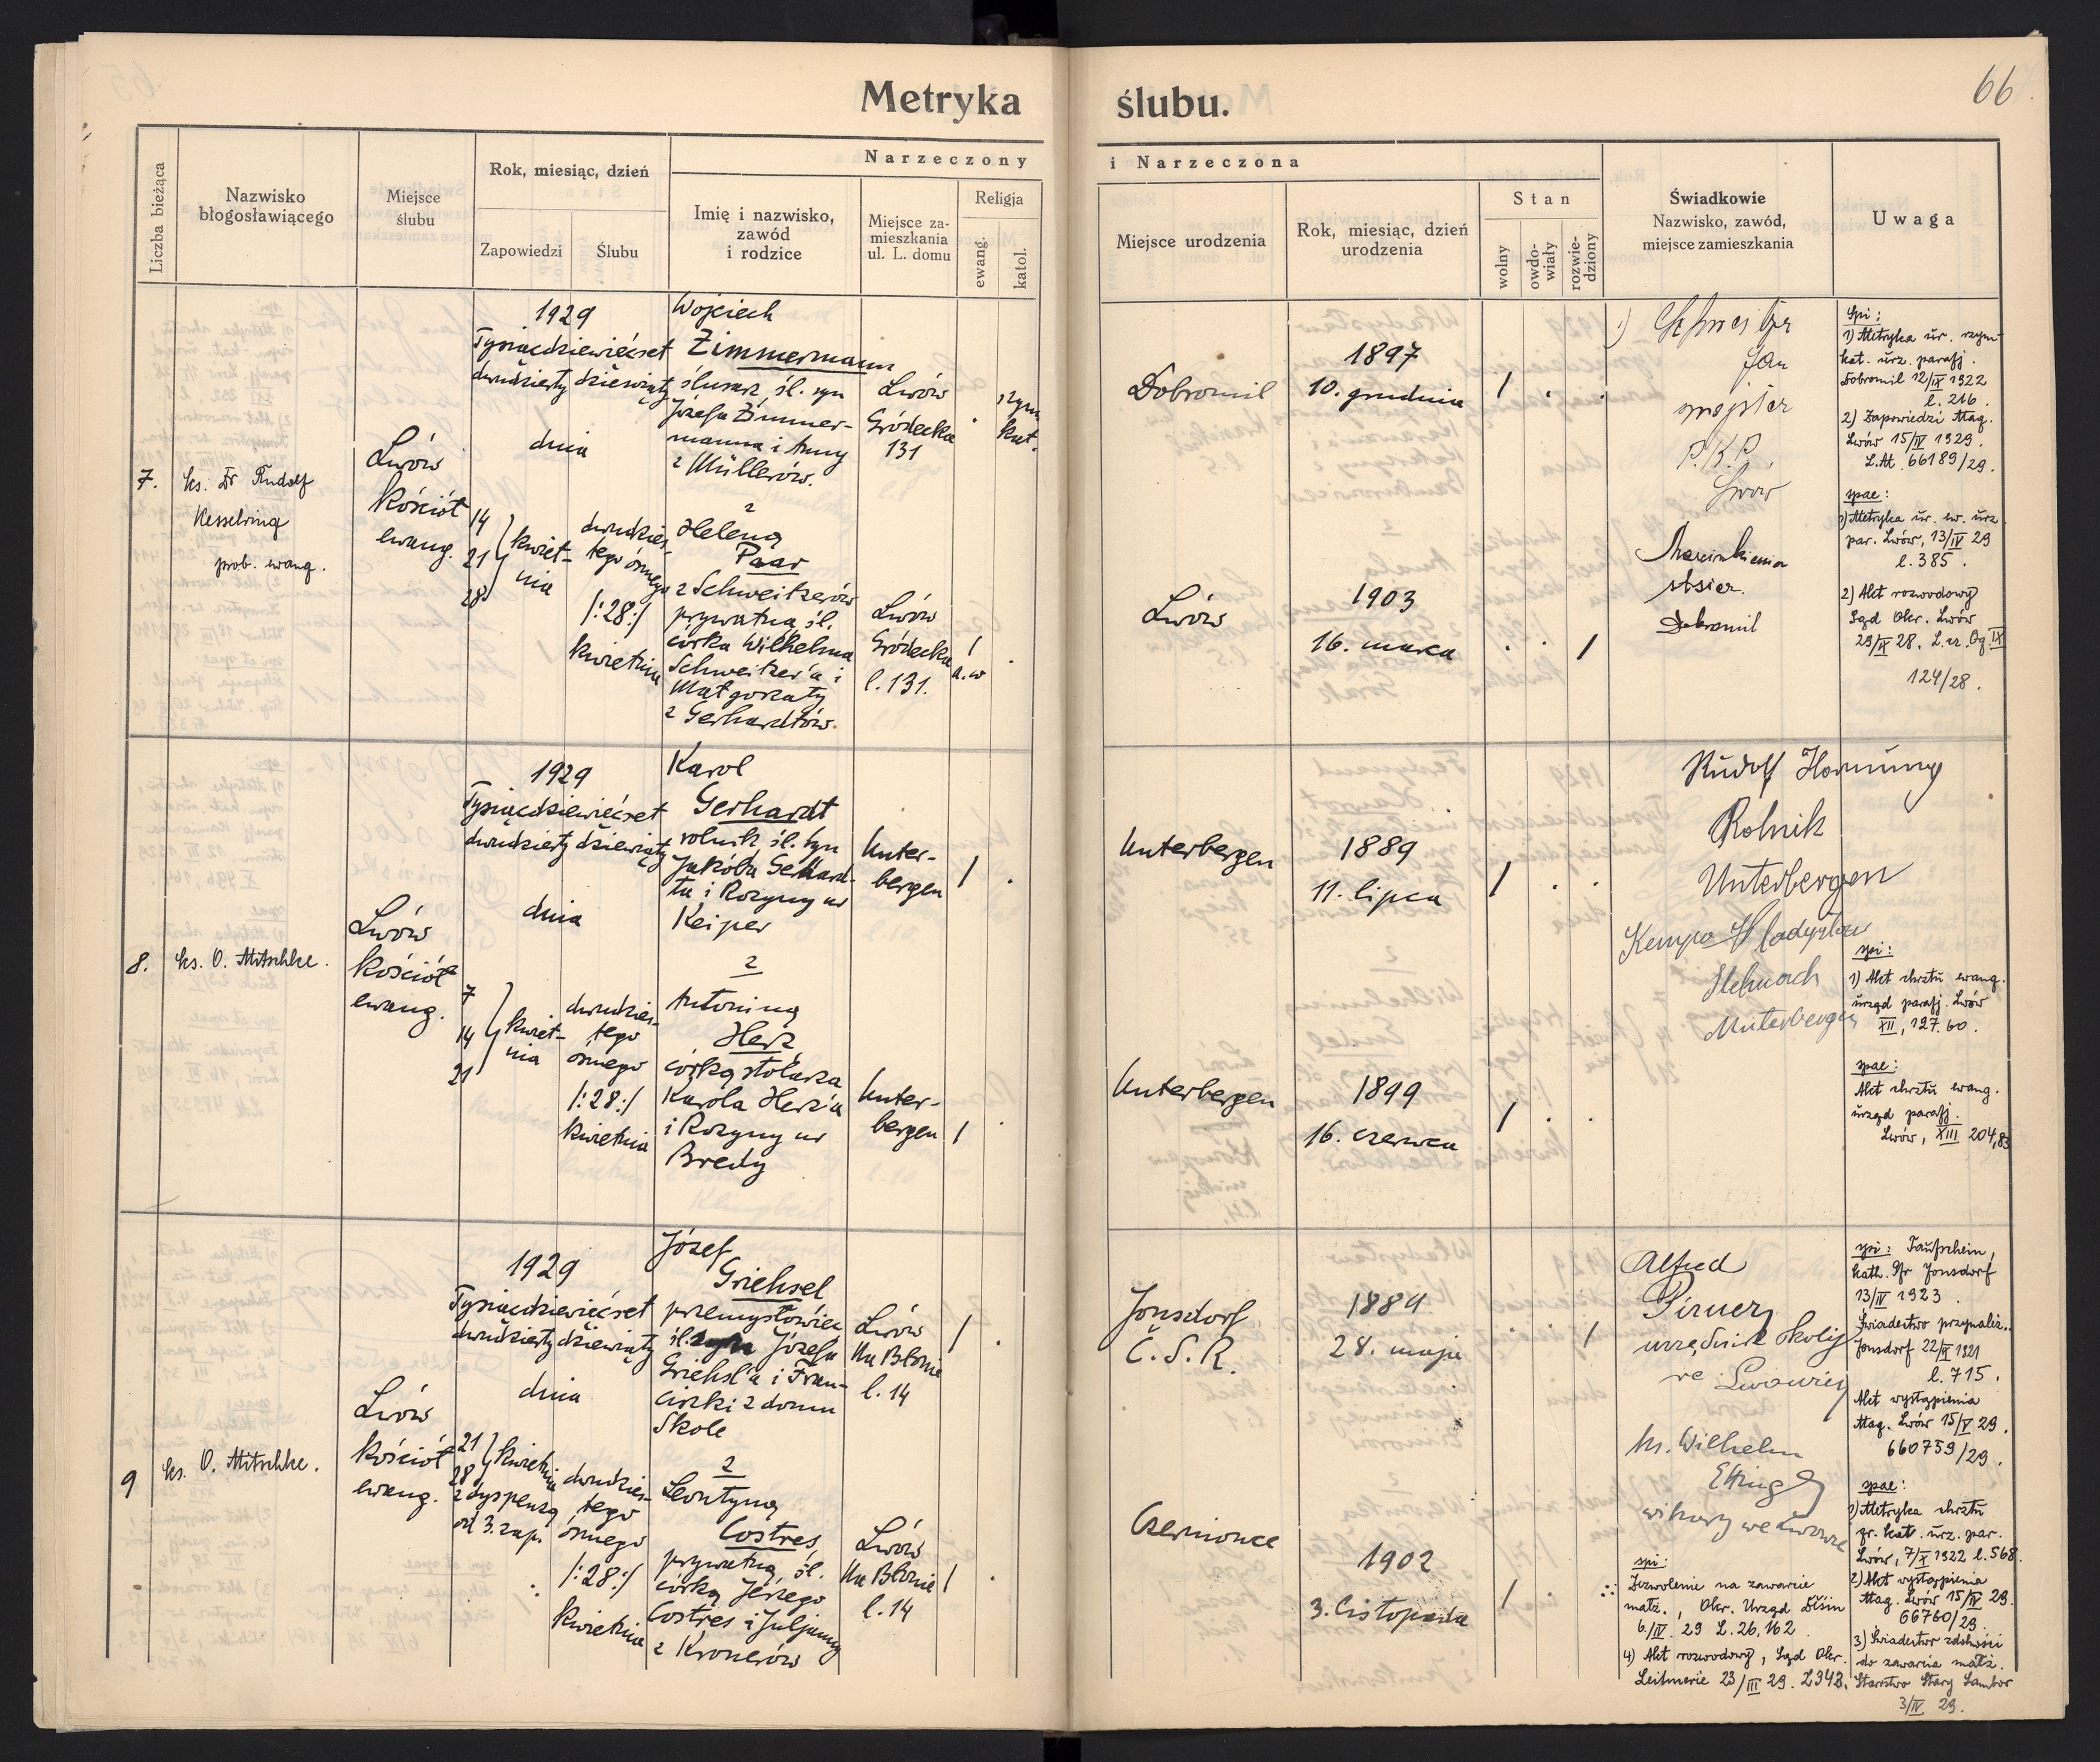 66
Metryka ślubu.
Liczba bieżąca
Nazwisko
błogosławiącego
Miejsce
ślubu
Rok, miesiąc, dzień
Zapowiedzi
Ślubu
Narzeczony
i Narzeczona
Imię i nazwisko,
zawód
i rodzice
Miejsce za-
mieszkania
ul. L. domu
Religja
ewang.
katol.
Miejsce urodzenia
Rok, miesiąc, dzień
urodzenia
Stan
wolny
owdo-
wiały
rozwie-
dziony
Świadkowie
Nazwisko, zawód,
miejsce zamieszkania
Uwaga
7.
ks. Dr Rudolf
Kesselring
prob. ewang.
Lwów
kościół
ewang.
1929
Tysiącdziewięćset
dwudziesty dziewiąty
dnia
14
21
28
kwiet-
nia
dwudzies-
tego ósmego
/:28:/
kwietnia
Wojciech
Zimmermann
ślusarz, śl. syn
Józefa Zimmer-
manna i Anny
z Müllerów.
z
Heleną
Paar
z Schweitzerów
prywatną, śl.
córka Wilhelma
Schweitzer'a i
Małgorzaty
z Gerhardtów.
Lwów
Gródecka
131
rzym.
kat.
Lwów
Gródecka
l. 131.
/
a.w
Dobromil
1897
10. grudnia
/ . .
Lwów
1903
16. marca
. . /
1)
Jan
majster
P.K.P.
Lwów
Dobromil
Spi:
1) Metryka ur. rzym-
kat. urz. parafj.
Dobromil 12/IX 1922
l. 216.
2) Zapowiedzi Mag.
Lwów 15/IV 1929.
L.M. 66189/29.
spae:
1) Metryka ur. ew. urz.
par. Lwów, 13/IV 29
l. 385.
2) Akt rozwodowy
Sąd Okr. Lwów
29/X 28. L. cz. Cg. IX
124/28.
8.
ks. O. Mitschke.
Lwów
kościół
ewang.
1929
Tysiącdziewięćset
dwudziesty dziewiąty
dnia
7
14
21
kwiet-
nia
dwudzies-
tego
ósmego
/:28:/
kwietnia
Karol
Gerhardt
rolnik, śl. syn
Jakóba Gerhard-
ta i Rozyny ur
Keiper
z
Antoniną
Herz
córką stolarza
Karola Herz'a
i Rozyny ur
Bredy
Unter-
bergen
/ .
Unter-
bergen
/ .
Unterbergen
1889
11. lipca
/ . .
Unterbergen
1899
16. czerwca
/ . .
Rudolf Hornung
Rolnik
Unterbergen
Kempa Władysław
Unterbergen
spi:
1) Akt chrztu ewang.
urząd parafj. Lwów
XII, 127.60.
spae:
Akt chrztu ewang.
urząd parafj.
Lwów, XIII 204,83
9
ks. O. Mitschke.
Lwów
kościół
ewang.
1929
Tysiącdziewięćset
dwudziesty dziewiąty
dnia
21
28
kwietnia
z dyspensą
od 3. zap.
dwudzies-
tego
ósmego
/:28:/
kwietnia
Józef
Griehsel
przemysłowiec
śl. syn Józefa
Griehsl'a i Fran-
ciszki z domu
Skole
z
Leontyną
Costres,
prywatną, śl.
córką Jerzego
Costres i Juljanny
z Kronerów
Lwów
Na Błonie
l. 14
/ .
Lwów
Na Błonie
l. 14
/ .
Jonsdorf
Č.S.R.
1889
28. maja
. . /
Czerniowce
1902
3. listopada
/ .
Alfred
Pirner
urzędnik
we Lwowie
ks. Wilhelm
Ettinger
wikary we Lwowie
spi:
Zezwolenie na zawarcie
małż., Okr. Urząd Děčin
6./IV. 29 L. 26,162
4) Akt rozwodowy, Sąd Okr.
Leitmeric 23/III 29. L 342.
spi: Taufschein,
kath. Pfr Jonsdorf
13/IV 1923.
Świadectwo przynależ..
Jonsdorf 22/IX 1921
l. 715.
Akt wystąpienia
Mag. Lwów 15/IV 29.
660759/29.
spae:
1) Metryka chrztu
gr. kat. urz. par.
Lwów, 7/X 1922 l. 568.
2) Akt wystąpienia
Mag. Lwów 15/IV 29.
66760/29.
3) Świadectwo zdolności
do zawarcia małż.
Starostwo Stary Sambor
3/IV 29.